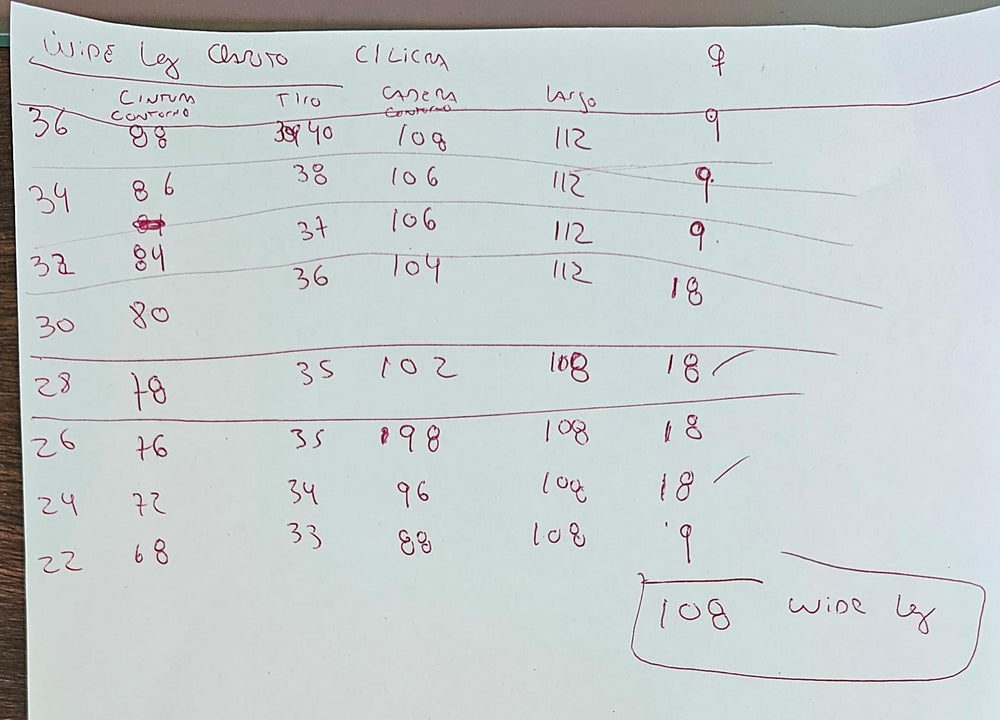 WIDE Leg C/LICRA ♀
CINTURA TIRO CADERA LARGO
CONTORNO CONTORNO
36 88 40 108 112 9
34 86 38 106 112 9
32 84 37 106 112 9
30 80 36 104 112 18
28 78 35 102 108 18
26 76 35 98 108 18
24 72 34 96 108 18
22 68 33 88 108 9
108 WIDE Leg